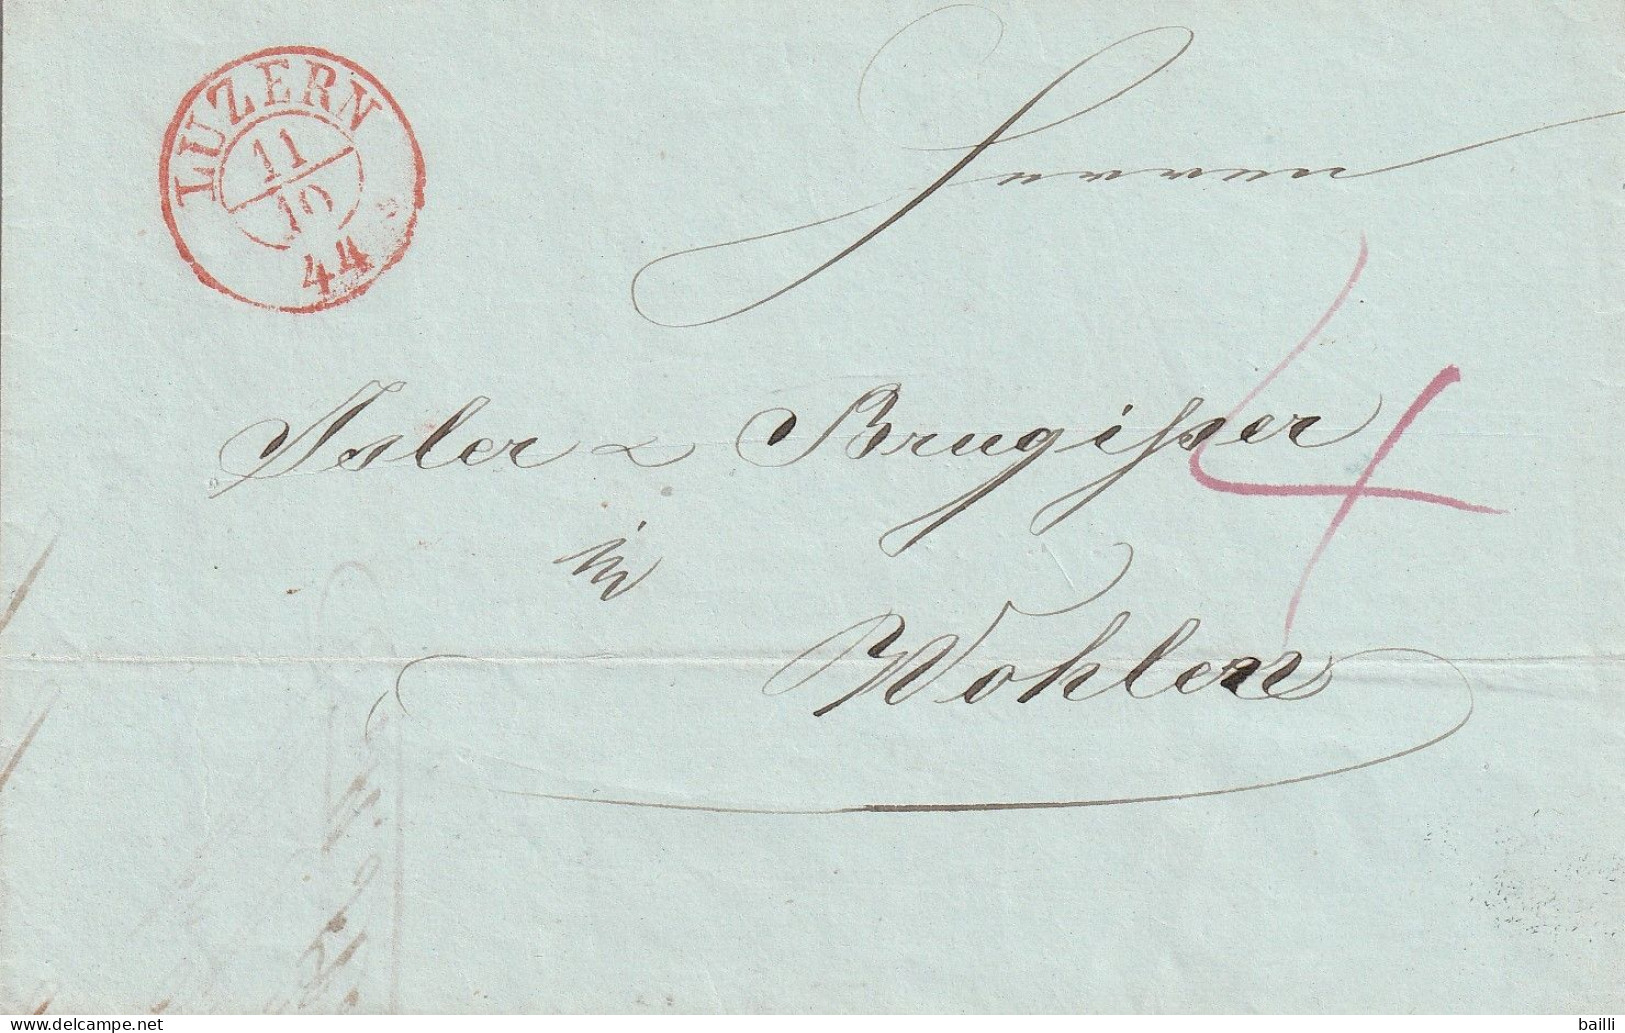 LUZERN
11
10
44
Herren
Isler & Brugisser
4
in
Wohlen
www.delcampe.net
bailli